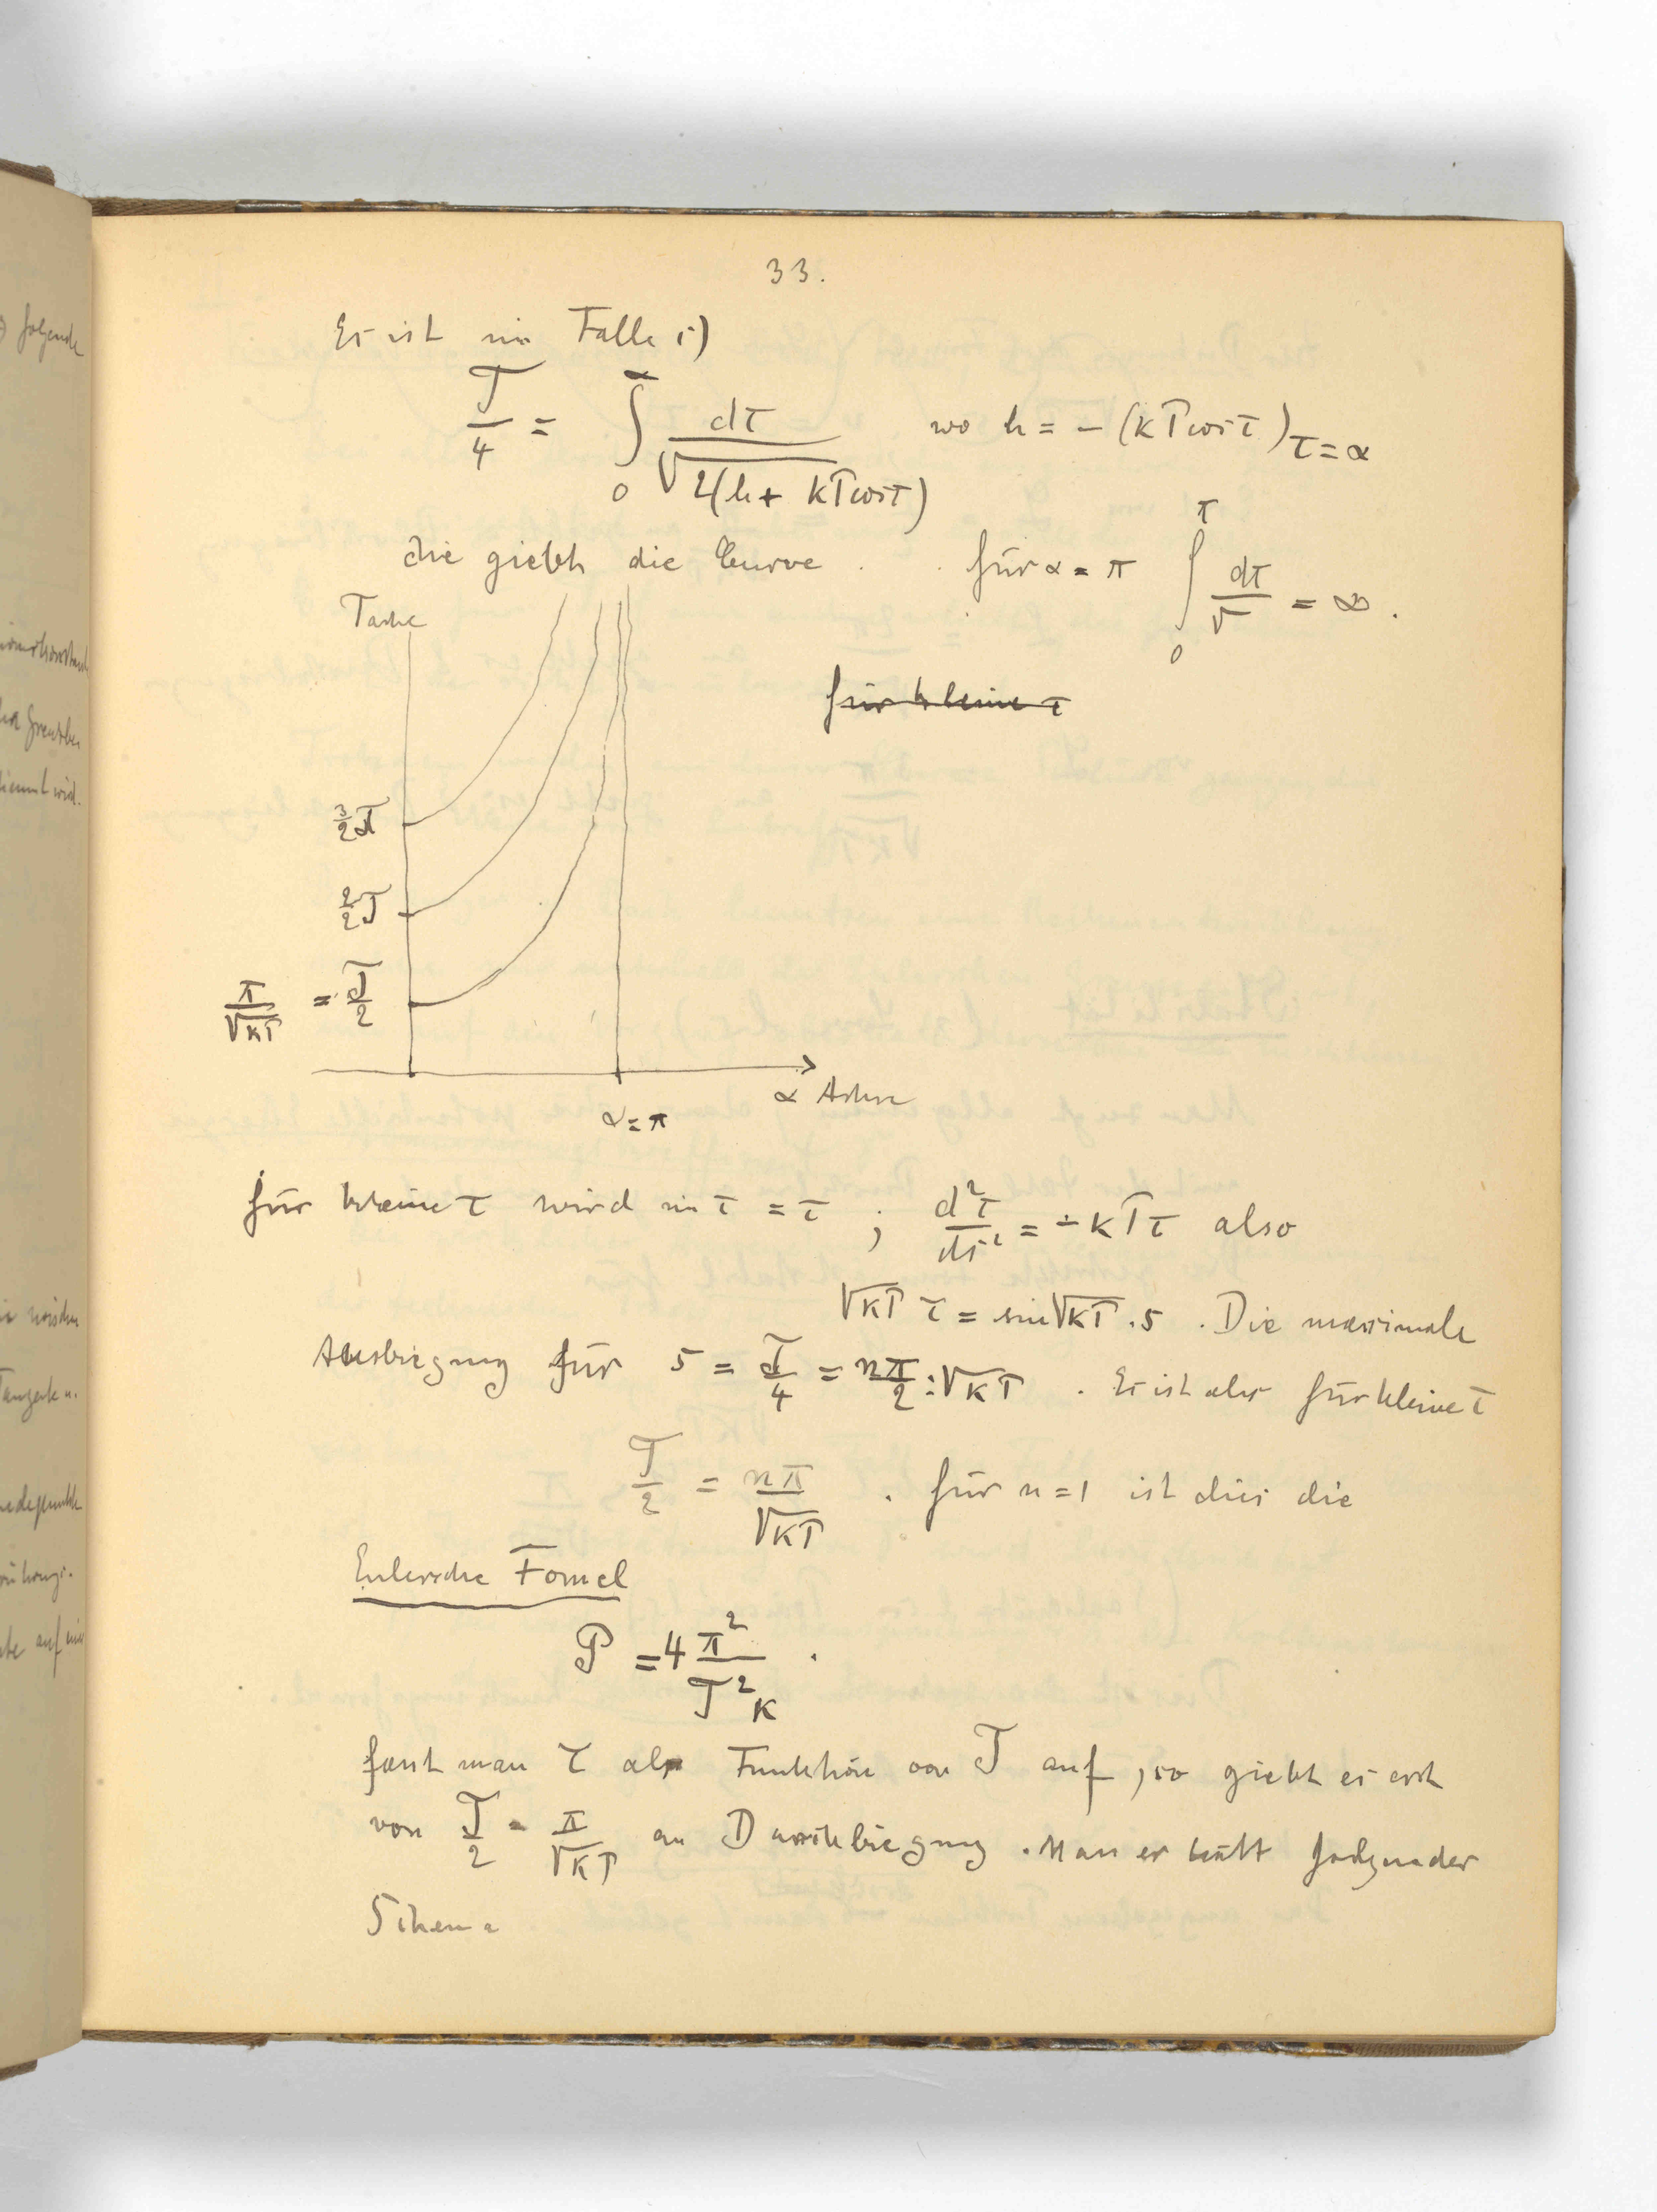 33.
Es ist im Falle 1)
T/4 = ∫₀^α dτ / √2(h + kP cos τ) wo h = – (kP cos τ)τ=α
die giebt die Curve . . für α = π ∫₀^π dτ/√ = ∞ .
für kleine τ
3/2 T
2/2 T
π/√kP = T/2
α Achse
α = π
für kleine τ wird sin τ = τ ; d²τ/ds² = – kPτ also
√kP τ = sin √kP . s . Die maximale
Ausbiegung für s = T/4 = nπ/2 : √kP . Es ist aber für kleine τ
T/2 = nπ/√kP . für n = 1 ist dies die
Eulersche Formel
P = 4 π²/T²k .
fasst man τ als Funktion von T auf, so giebt es erst
von T/2 = π/√kP an Durchbiegung . Man erhält folgender
Schema
folgende
wird.
Tangente u.
auf